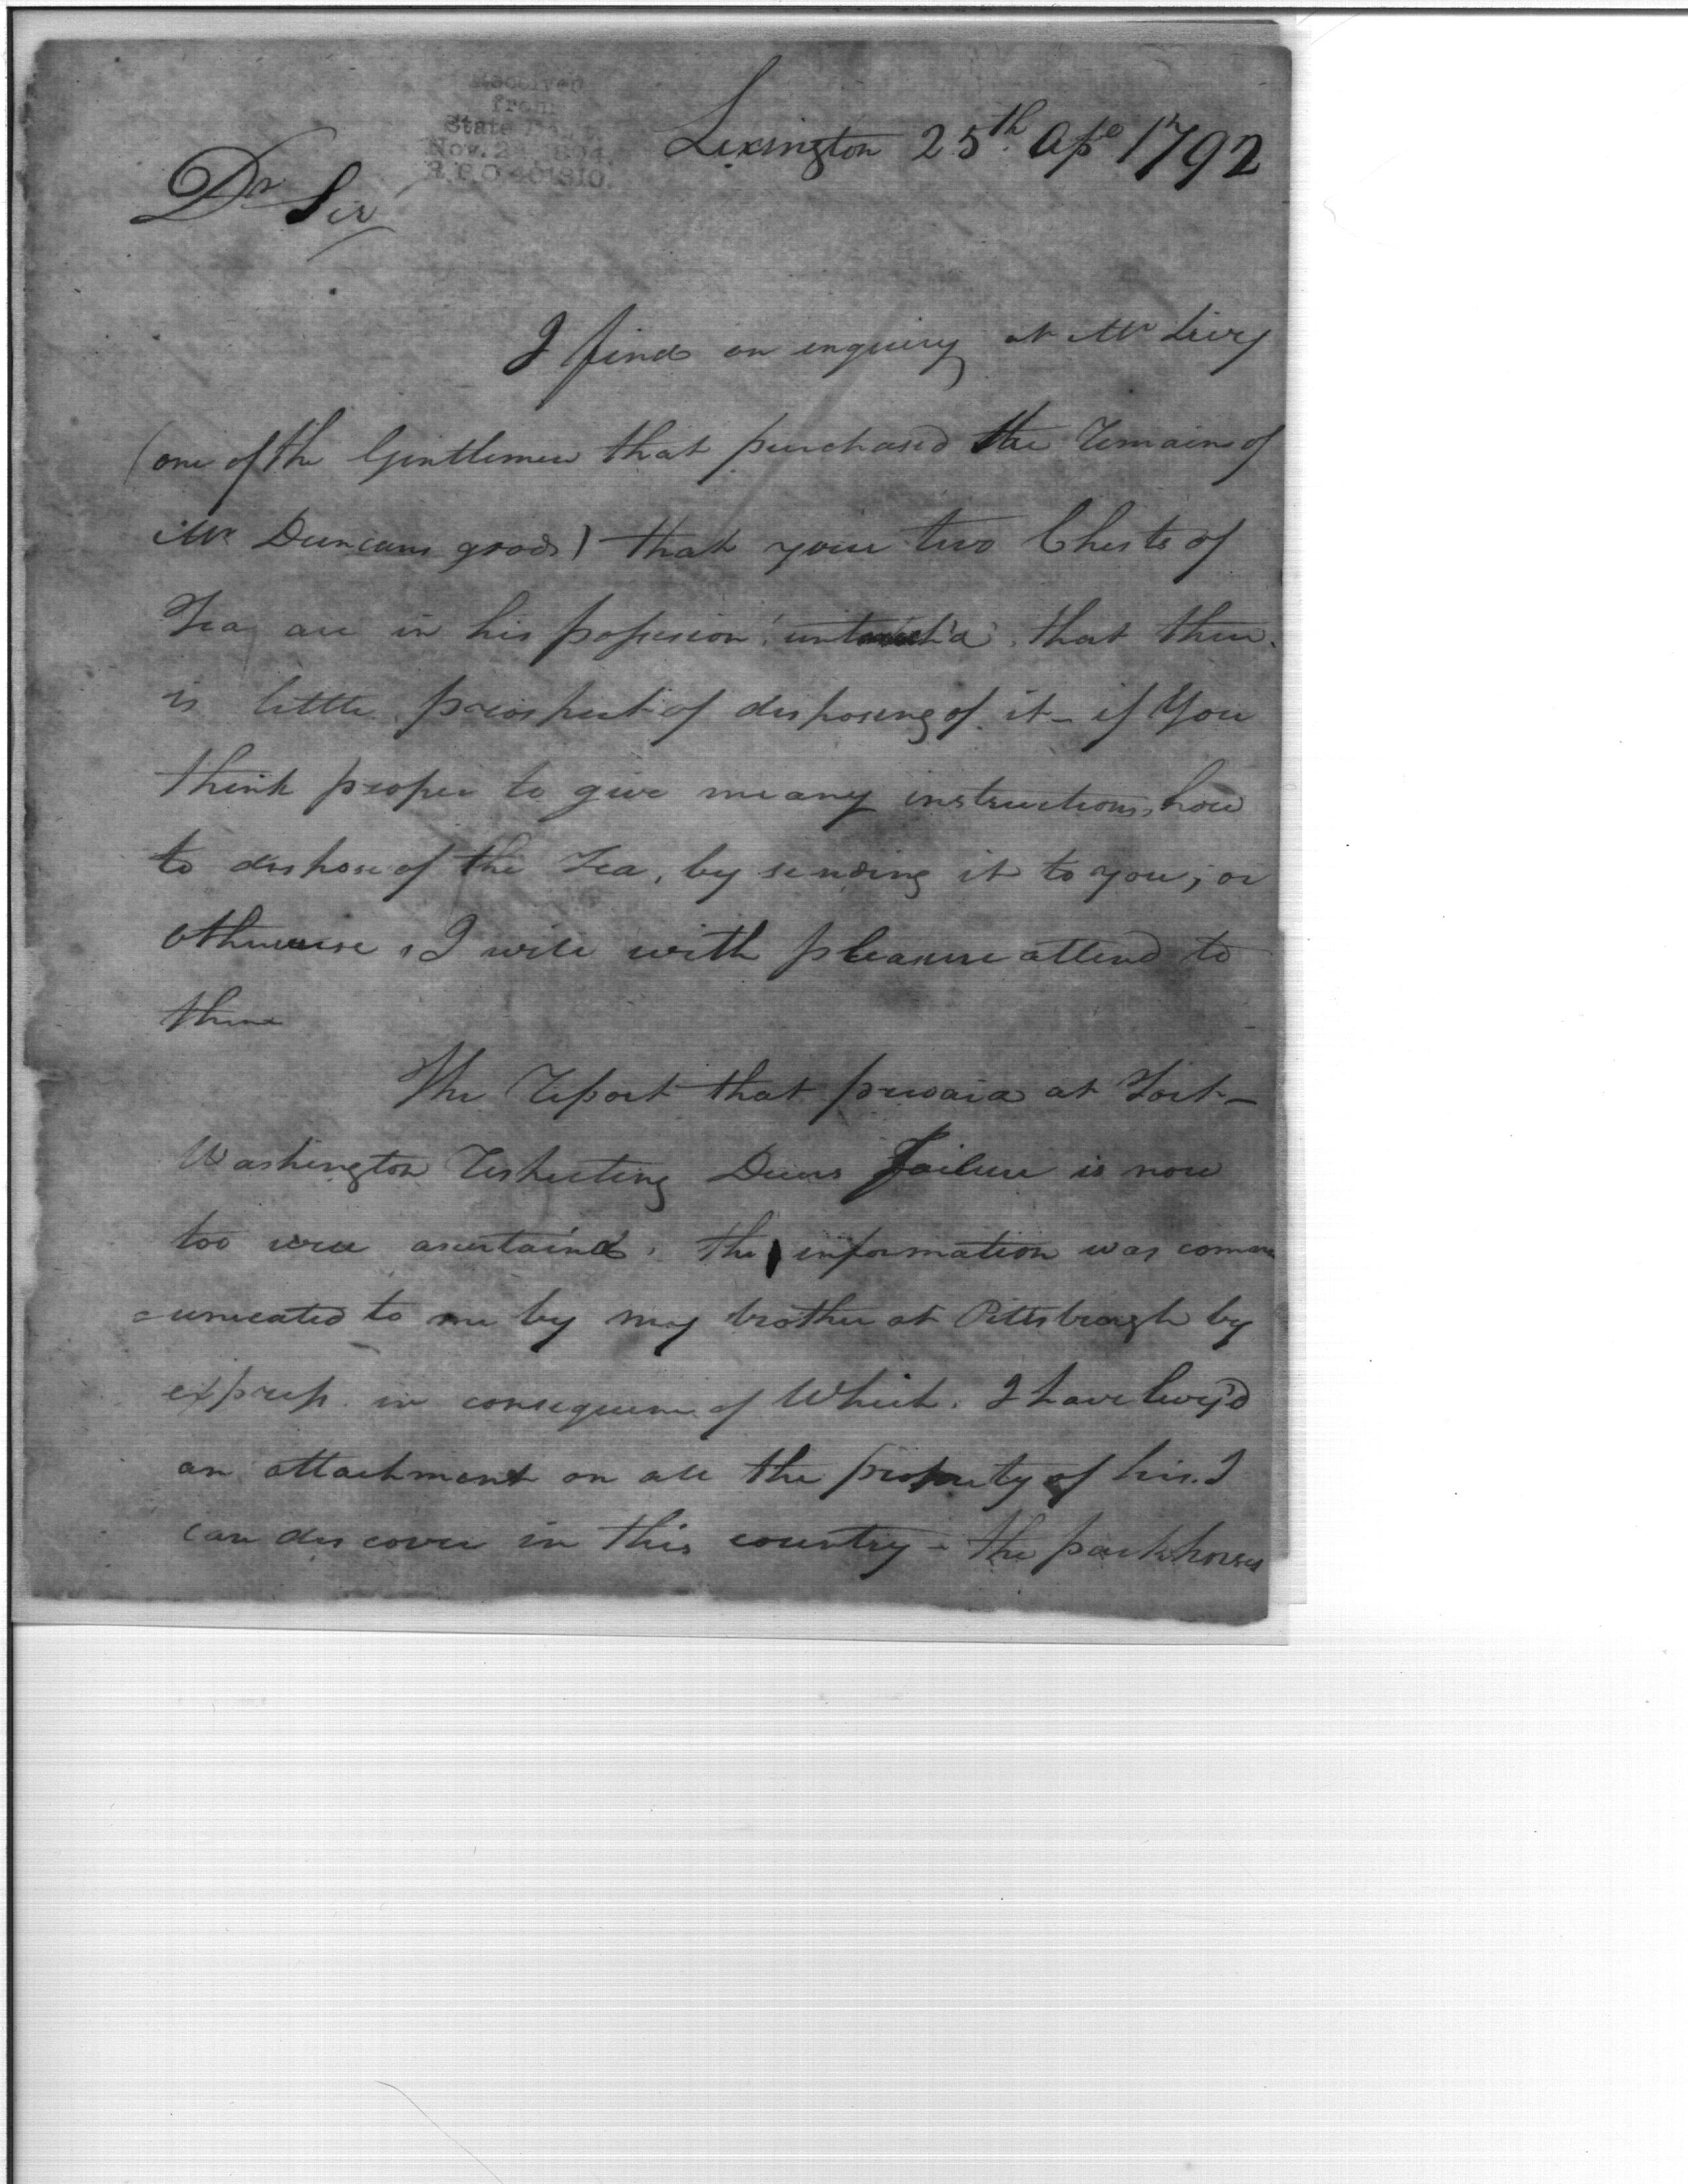 Received
from
State Dept.
Nov. 24 1894.
R.&P.O. 401310.
Lexington 25th. Apl 1792
Dr Sir
I find on inquiry at Mr
(one of the Gentlemen that purchased the remains of
Mr Duncans goods) that your two Chests of
Tea are in his possession, untouch'd, that there
is little prospect of disposing of it – if You
think proper to give me any instructions, how
to dispose of the Tea, by sending it to you; or
otherwise, I will with pleasure attend to
them
The report that prevaid at Fort-
Washington respecting Duers Failure is now
too well ascertaind, the information was comm
=unicated to me by my brother at Pittsbragh by
express. in consequence of Which, I have levy'd
an attachment on all the property of his. I
can discover in this country – the packhorses